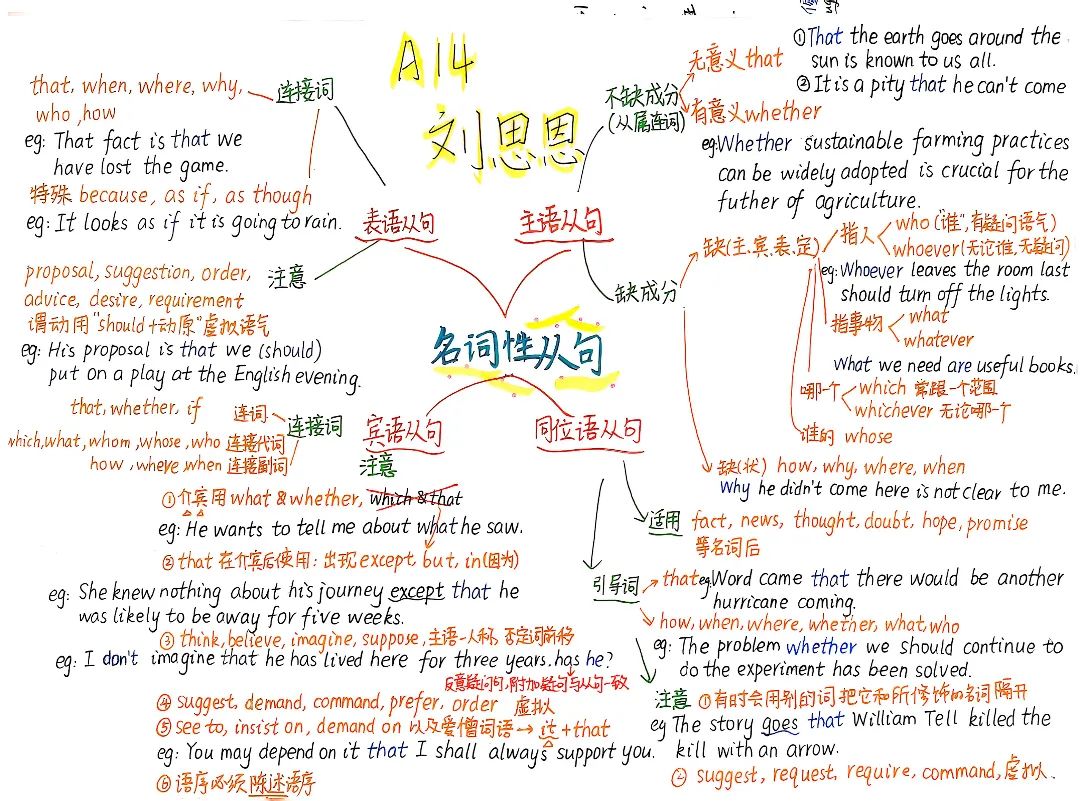 A14
刘思恩
名词性从句
表语从句
连接词
that, when, where, why,
who, how
eg: That fact is that we
have lost the game.
特殊 because, as if, as though
eg: It looks as if it is going to rain.
注意
proposal, suggestion, order,
advice, desire, requirement
谓动用"should+动原"虚拟语气
eg: His proposal is that we (should)
put on a play at the English evening.
主语从句
不缺成分
(从属连词)
无意义that
①That the earth goes around the
sun is known to us all.
②It is a pity that he can't come
有意义whether
eg:Whether sustainable farming practices
can be widely adopted is crucial for the
futher of agriculture.
缺成分
缺(主、宾、表、定)
指人
who ("谁",有疑问语气)
whoever(无论谁,无疑问)
eg: Whoever leaves the room last
should turn off the lights.
指事物
what
whatever
What we need are useful books.
哪一个
which 常跟一个范围
whichever 无论哪一个
谁的 whose
缺(状) how, why, where, when
Why he didn't come here is not clear to me.
宾语从句
连接词
that, whether, if 连词
which, what, whom, whose, who 连接代词
how, where, when 连接副词
注意
①介宾用 what & whether, which & that
eg: He wants to tell me about what he saw.
②that 在介宾后使用: 出现 except, but, in(因为)
eg: She knew nothing about his journey except that he
was likely to be away for five weeks.
③think, believe, imagine, suppose, 主语一人称, 否定词前移
eg: I don't imagine that he has lived here for three years. has he?
反意疑问句,附加疑句与从句一致
④suggest, demand, command, prefer, order 虚拟
⑤see to, insist on, demand on 以及爱憎词语→it+that
eg: You may depend on it that I shall always support you.
⑥语序必须陈述语序
同位语从句
适用 fact, news, thought, doubt, hope, promise
等名词后
引导词
that eg: Word came that there would be another
hurricane coming.
how, when, where, whether, what, who
eg: The problem whether we should continue to
do the experiment has been solved.
注意 ①有时会用别的词把它和所修饰的名词隔开
eg The story goes that William Tell killed the
kill with an arrow.
②suggest, request, require, command, 虚拟.